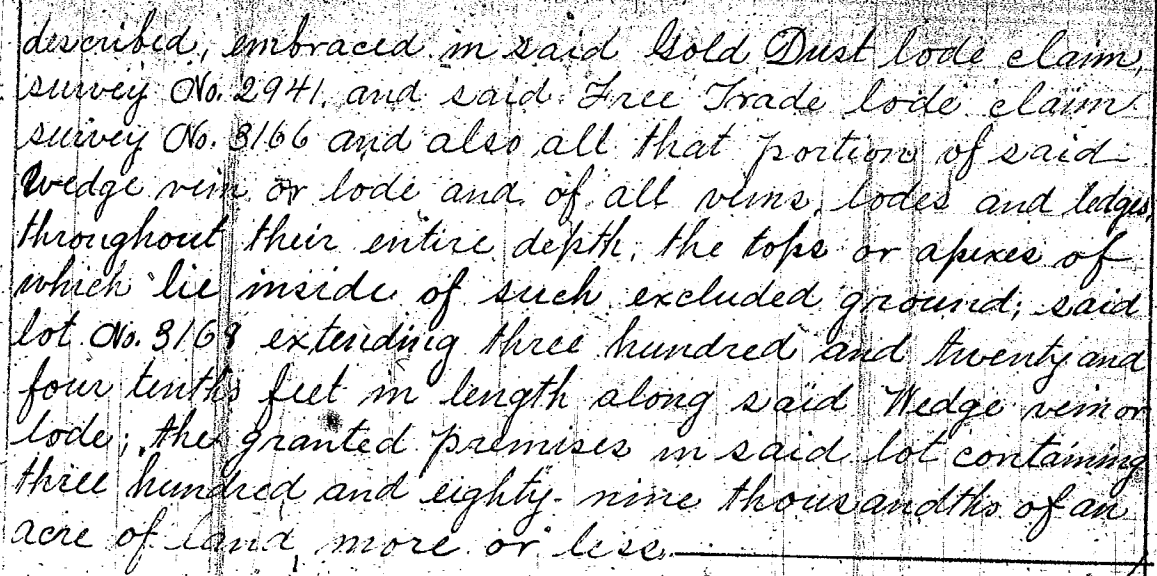 described, embraced in said Gold Dust lode claim,
survey No. 2941, and said Free Trade lode claim
survey No. 3166 and also all that portion of said
Wedge vein or lode and of all veins, lodes and ledges,
throughout their entire depth, the tops or apexes of
which lie inside of such excluded ground; said
lot No. 3168 extending three hundred and twenty and
four tenths feet in length along said Wedge vein or
lode; the granted premises in said lot containing
three hundred and eighty-nine thousandths of an
acre of land, more or less.